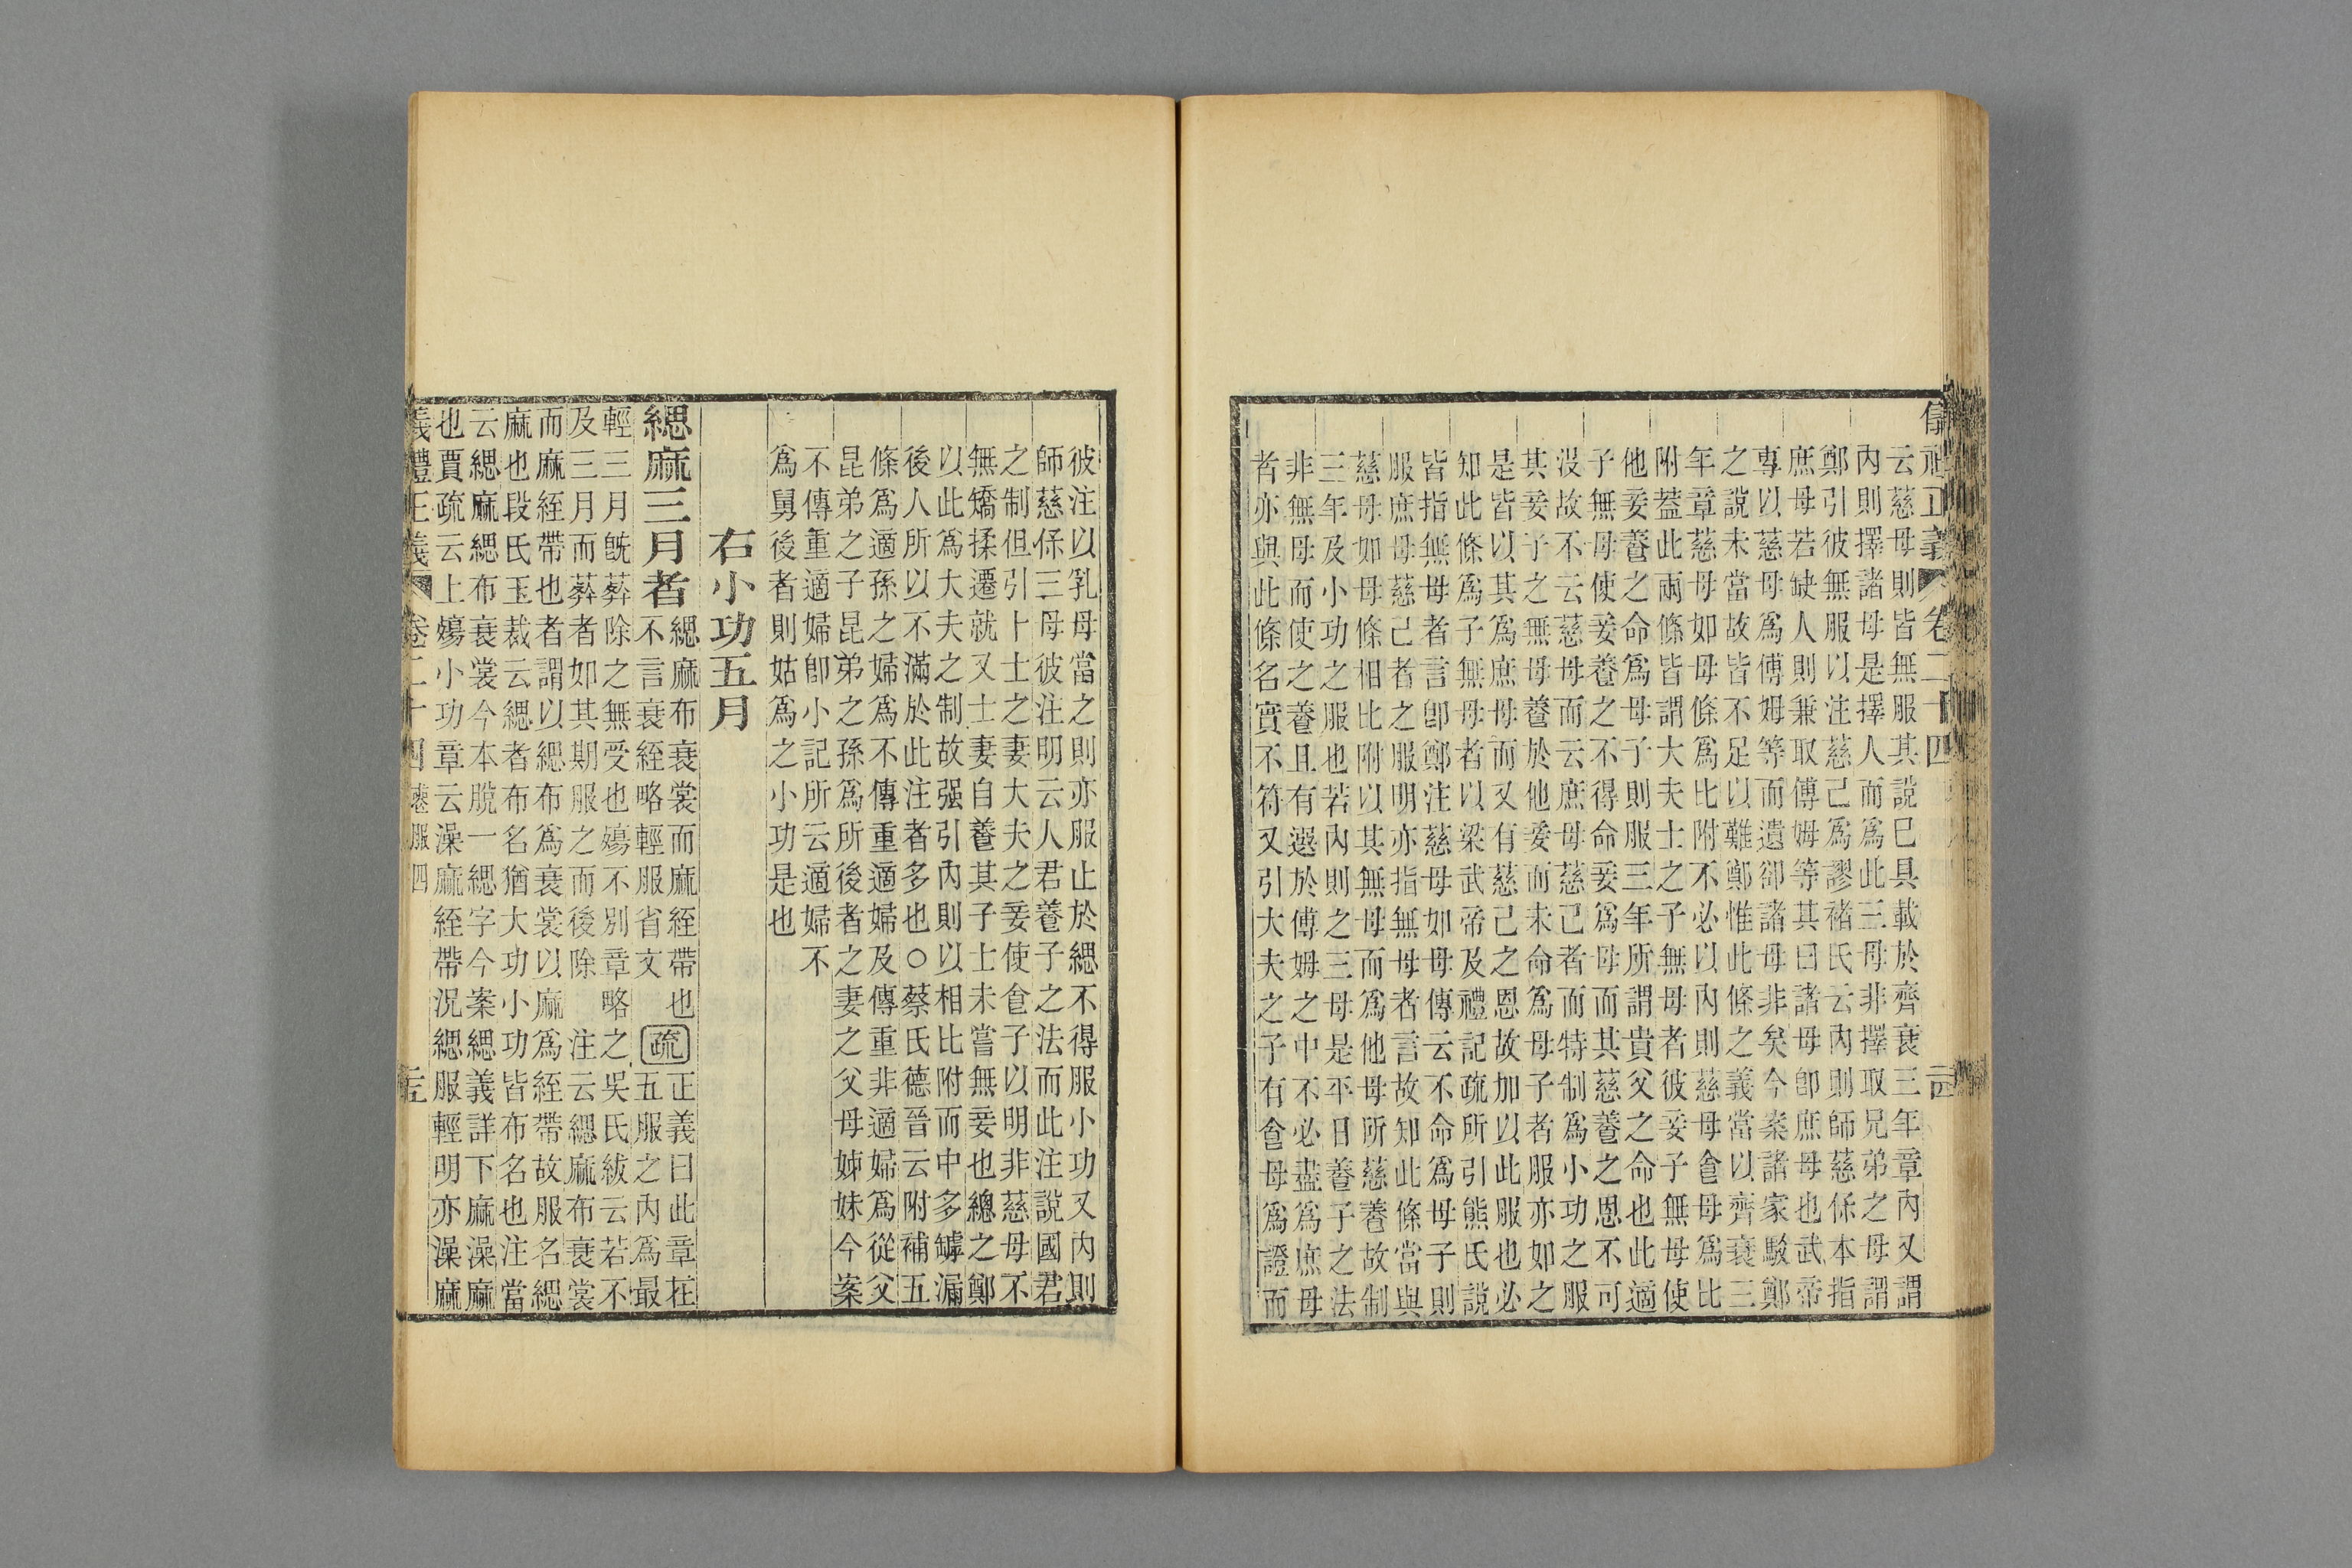 儀禮正義 卷二十四
云慈母則皆無服其說已具載於齊衰三年章內又謂
內則擇諸母是擇人而爲此三母非擇取兄弟之母謂
鄭引彼無服以注慈己爲謬褚氏云內則師慈保本指
庶母若缺人則兼取傅姆等其曰諸母卽庶母也武帝
專以慈母爲傅姆等而遺卻諸母非矣今案諸家駮鄭
之說未當故皆不足以難鄭惟此條之義當以齊衰三
年章慈母如母條爲比附不必以內則慈母食母爲比
附葢此兩條皆謂大夫士之子無母者彼妾子無母使
他妾養之命爲母子則服三年所謂貴父之命也此適
子無母使妾養之不得命妾爲母而其慈養之恩不可
沒故不云慈母而云庶母慈己者而特制爲小功之服
其妾子之無母養於他妾而未命爲母子者服亦如之
是皆以其爲庶母而又有慈己之恩故加以此服也必
知此條爲子無母者以梁武帝及禮記疏所引熊氏說
皆指無母者言卽鄭注慈母如母傳云不命爲母子則
服庶母慈己者之服明亦指無母者言故知此條當與
慈母如母條相比附以其無母而爲他母所慈養故制
三年及小功之服也若內則之三母是平日養子之法
非無母而使之養且有選於傅姆之中不必盡爲庶母
者亦與此條名實不符又引大夫之子有食母爲證而
彼注以乳母當之則亦服止於緦不得服小功又內則
師慈保三母彼注明云人君養子之法而此注說國君
之制但引卜士之妻大夫之妾使食子以明非慈母不
無矯揉遷就又士妻自養其子士未嘗無妾也總之鄭
以此爲大夫之制故强引內則以相比附而中多罅漏
後人所以不滿於此注者多也○蔡氏德晉云附補五
條爲適孫之婦爲不傳重適婦及傳重非適婦爲從父
昆弟之子昆弟之孫爲所後者之妻之父母姊妹今案
不傳重適婦卽小記所云適婦不
爲舅後者則姑爲之小功是也
右小功五月
緦麻三月者
緦麻布衰裳而麻絰帶也
不言衰絰略輕服省文
疏
正義曰此章在
五服之內爲最
輕三月旣葬除之無受也殤不別章略之吳氏紱云若不
及三月而葬者如其期服之而後除 注云緦麻布衰裳
而麻絰帶也者謂以緦布爲衰裳以麻爲絰帶故服名緦
麻也段氏玉裁云緦者布名猶大功小功皆布名也注當
云緦麻緦布衰裳今本脫一緦字今案緦義詳下麻澡麻
也賈疏云上殤小功章云澡麻絰帶況緦服輕明亦澡麻
義禮正義 卷二十四 喪服四